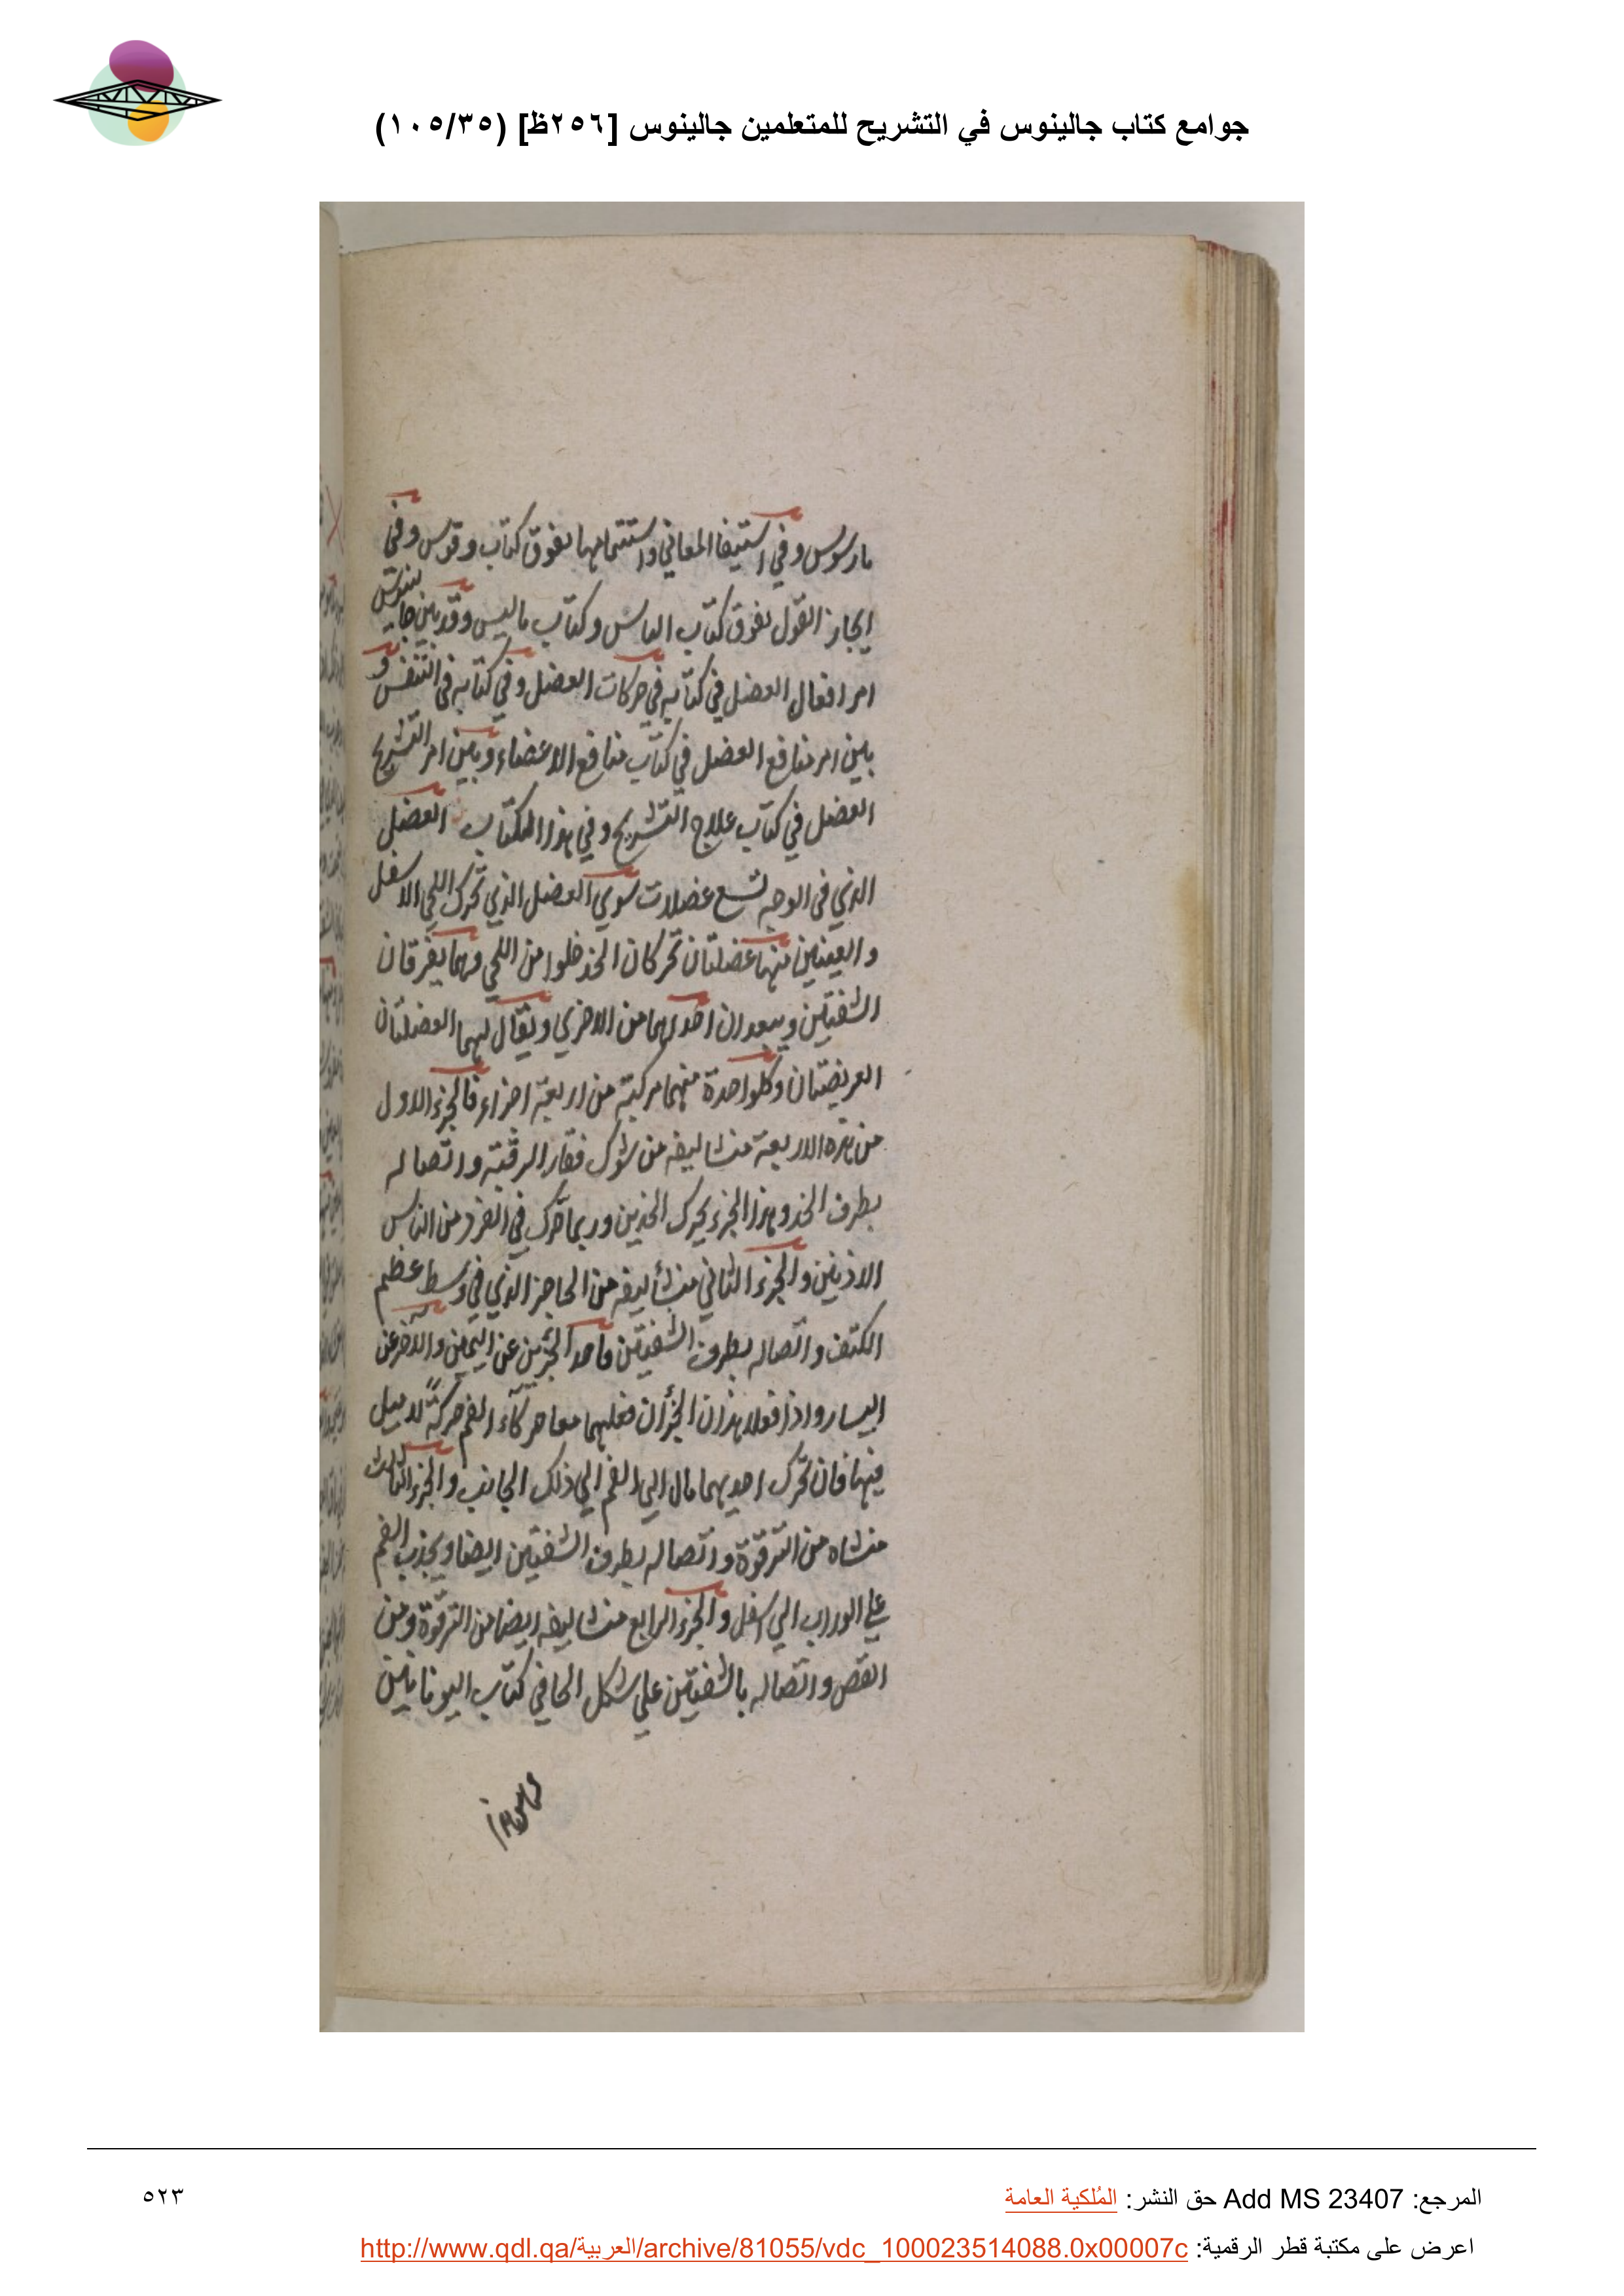 جوامع كتاب جالينوس في التشريح للمتعلمين جالينوس [٢٥٦ظ] (١٠٥/٣٥)
مارسوس وفي استيفا المعاني واستتمامها يفوق كتاب وقوس وفي
ايجاز القول يفوق كتاب الماس وكتاب ماليس وقد بين جالينوس
امر افعال العضل في كتابه في حركات العضل وفي كتابه في التنفس و
بين امر منافع العضل في كتاب منافع الاعضاء وبين امر التشريح
العضل في كتاب علاج التشريح وفي هذا الكتاب العضل
الذي في الوجه تسع عضلات سوي العضل الذي تحرك اللحي الاسفل
والعينين منها عضلتان تحركان الخد خلوا من اللحي وهما يفرقان
الشفتين ويبعدان احدلهما من الاخري ويقال لهما العضلتان
العريضتان وكلواحدة منهما مركبته من اربعة اجزاء فالجزء الاول
من هذه الاربعة منشا ليفه من شوك فقار الرقبة واتصاله
بطرف الخد وهذا الجزء يحرك الخدين وربما حرك في الفرد من الناس
الاذنين والجزء الثاني منشأ ليفه من الحاجز الذي في وسط عظم
الكتف واتصاله بطرف الشفتين فاحد الجزئين عن اليمين والاخر عن
اليسار واذا فعلا هذان الجزأن فعلهما معا حركاء الفم حركةً لا ميل
فيها فان تحرك احديهما مال الي الفم الي ذلك الجانب والجزء الثالث
منشاه من الترقوة واتصاله بطرف الشفتين ايضا ويجذب الفم
علي الوراب الي اسفل والجزء الرابع منشا ليفه ايضا من الترقوة ومن
القص واتصاله بالشفتين علي شكل الحا في كتاب اليونانيين
المرجع: Add MS 23407 حق النشر: المُلكية العامة
٥٢٣
اعرض على مكتبة قطر الرقمية: http://www.qdl.qa/العربية/archive/81055/vdc_100023514088.0x00007c